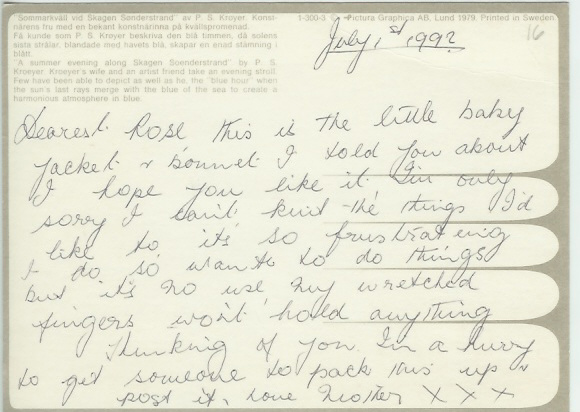 "Sommarkväll vid Skagen Sønderstrand" av P. S. Krøyer. Konst-
närens fru med en bekant konstnärinna på kvällspromenad.
Få kunde som P S Krøyer beskriva den blå timmen, då solens
sista strålar, blandade med havets blå, skapar en enad stämning i
blått.
"A summer evening along Skagen Soenderstrand" by P. S.
Kroeyer. Kroeyer's wife and an artist friend take an evening stroll.
Few have been able to depict as well as he, the "blue hour" when
the sun's last rays merge with the blue of the sea to create a
harmonious atmosphere in blue.
1-300-3 © Pictura Graphica AB, Lund 1979. Printed in Sweden
16
July, 1st 1992
Dearest Rose this is the little baby
jacket & bonnet I told you about
I hope you like it. I'm only
sorry I can't knit the things I'd
like to it's so frustrating
I do so want to do things
but it's no use my wretched
fingers won't hold anything
Thinking of you I'm a hurry
to get someone to pack this up &
post it, love Mother X X X